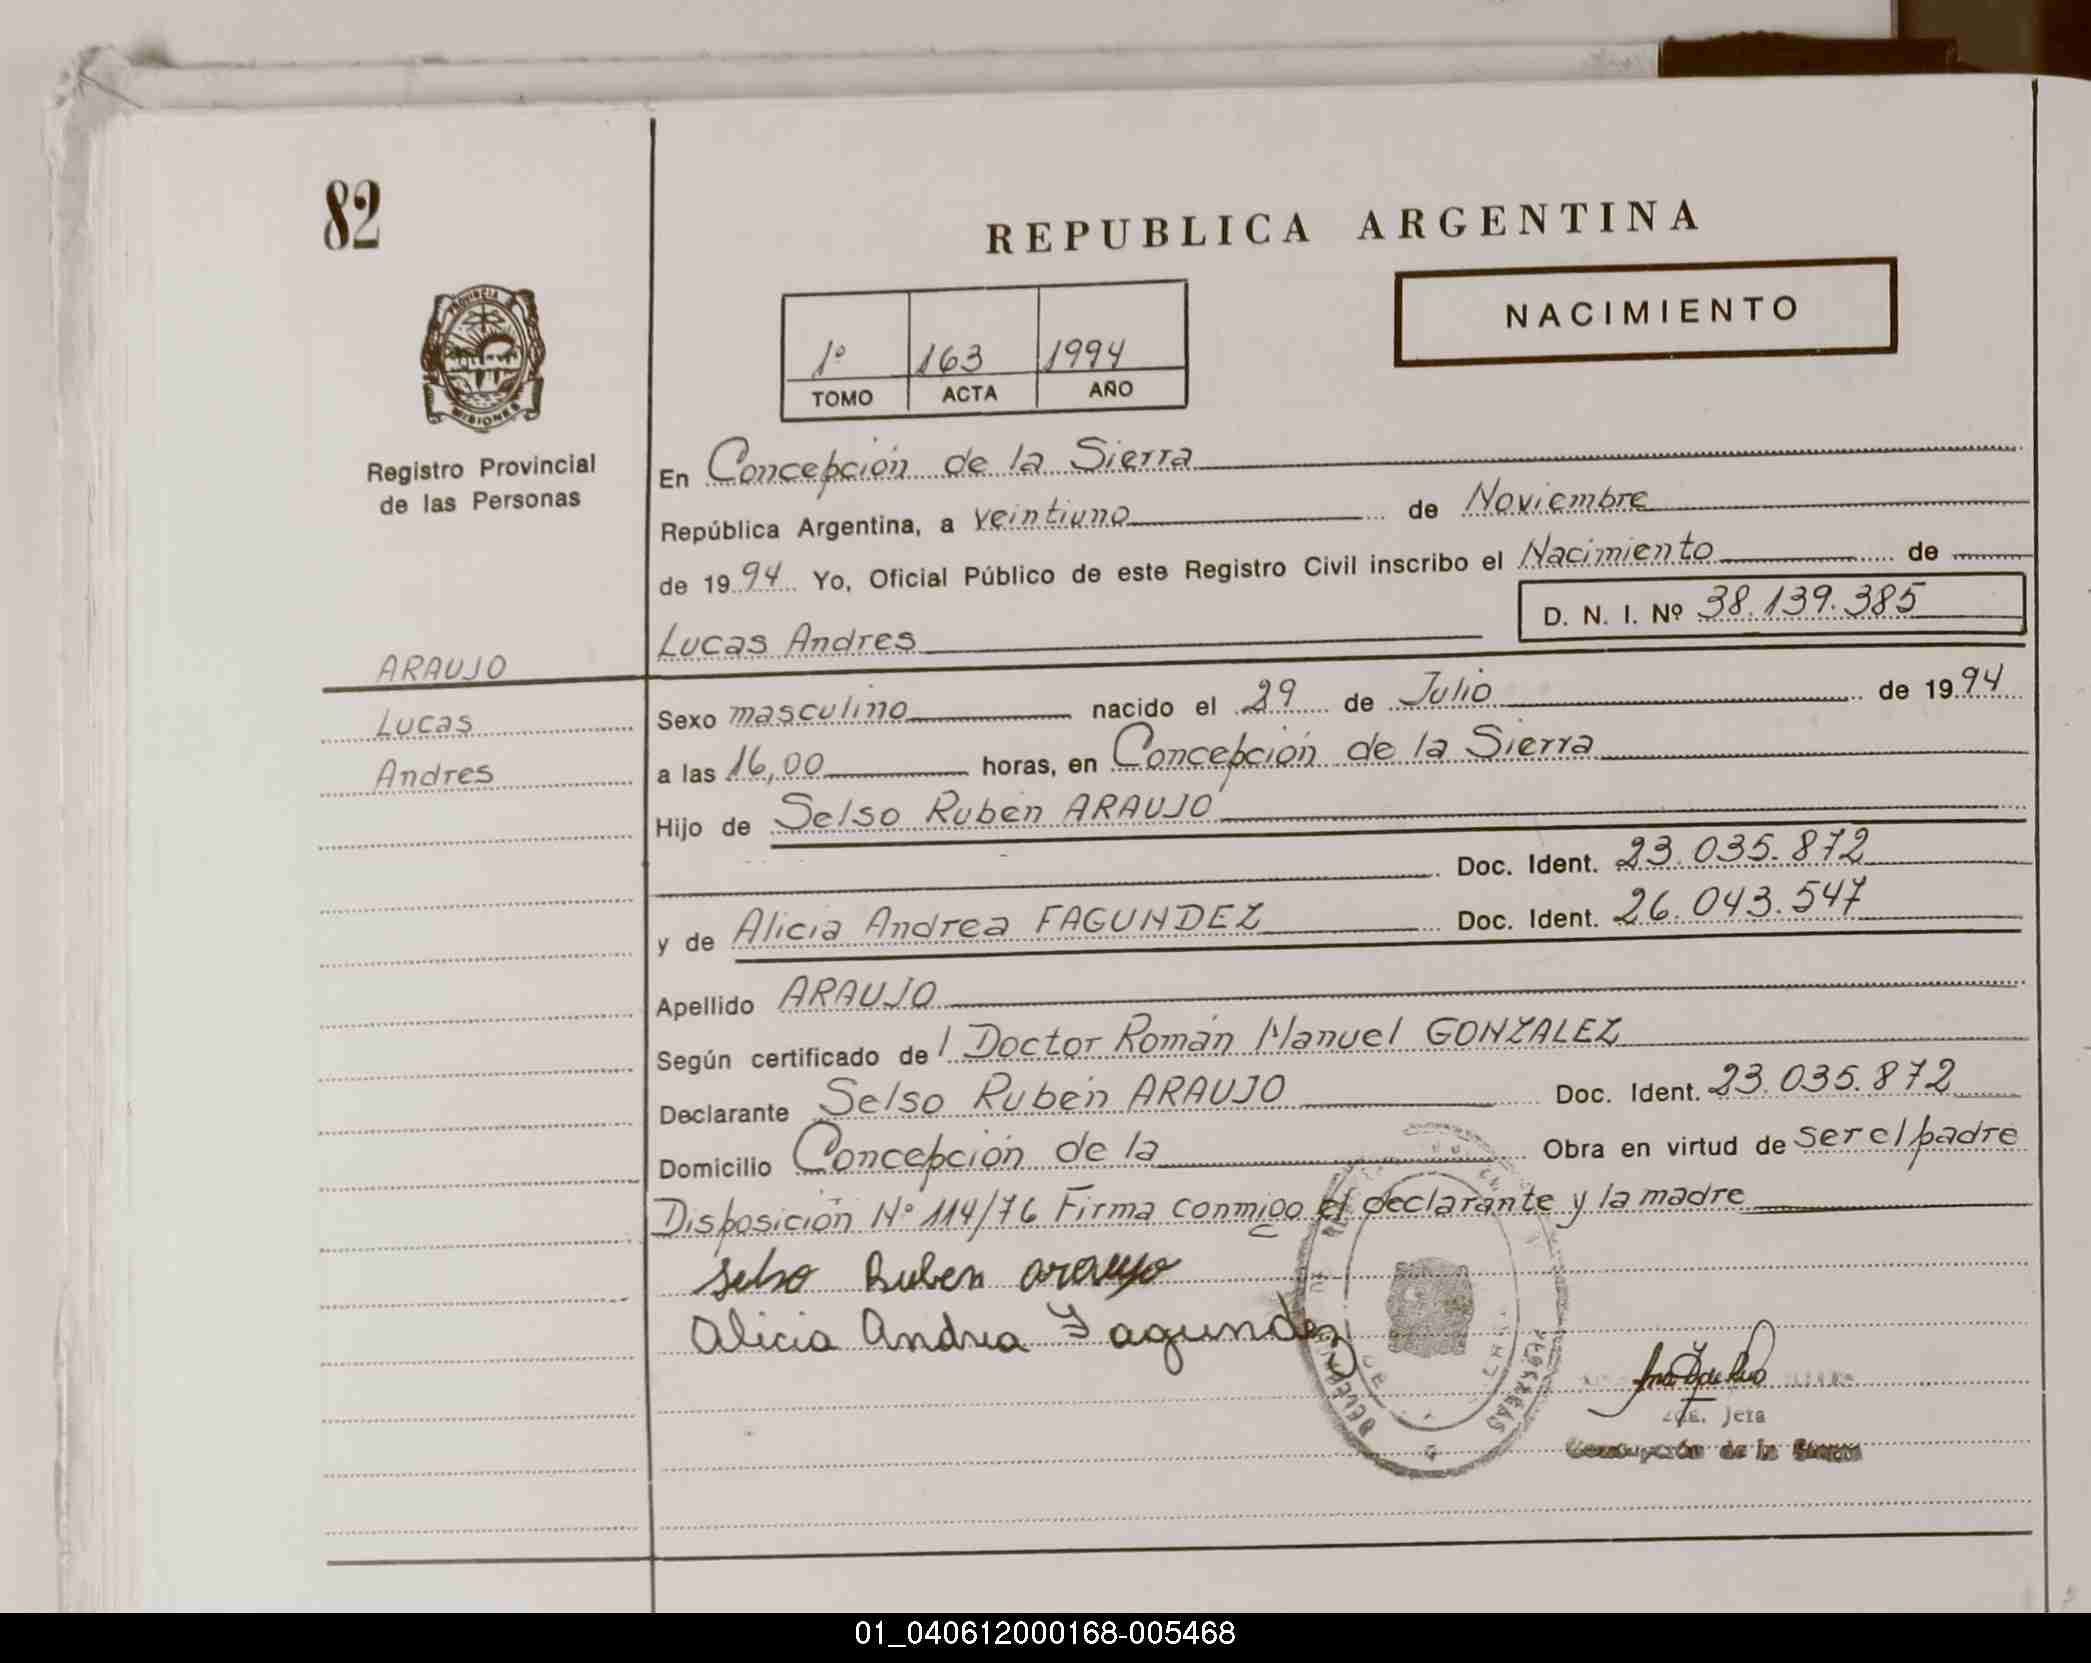 82
REPUBLICA ARGENTINA
NACIMIENTO
1º 163 1994
TOMO ACTA AÑO
PROVINCIA
MISIONES
Registro Provincial
de las Personas
ARAUJO
Lucas
Andres
En Concepción de la Sierra
República Argentina, a veintiuno de Noviembre
de 1994 Yo, Oficial Público de este Registro Civil inscribo el Nacimiento de
D. N. I. Nº 38.139.385
Lucas Andres
Sexo masculino nacido el 29 de Julio de 1994
a las 16,00 horas, en Concepción de la Sierra
Hijo de Selso Rubén ARAUJO
Doc. Ident. 23.035.872
y de Alicia Andrea FAGUNDEZ Doc. Ident. 26.043.547
Apellido ARAUJO
Según certificado del Doctor Román Manuel GONZALEZ
Declarante Selso Rubén ARAUJO Doc. Ident. 23.035.872
Domicilio Concepción de la Obra en virtud de ser el padre
Disposición Nº 114/76 Firma conmigo el declarante y la madre
Selso Ruben araujo
Alicia Andrea Fagundez
Jefa
de la
01_040612000168-005468